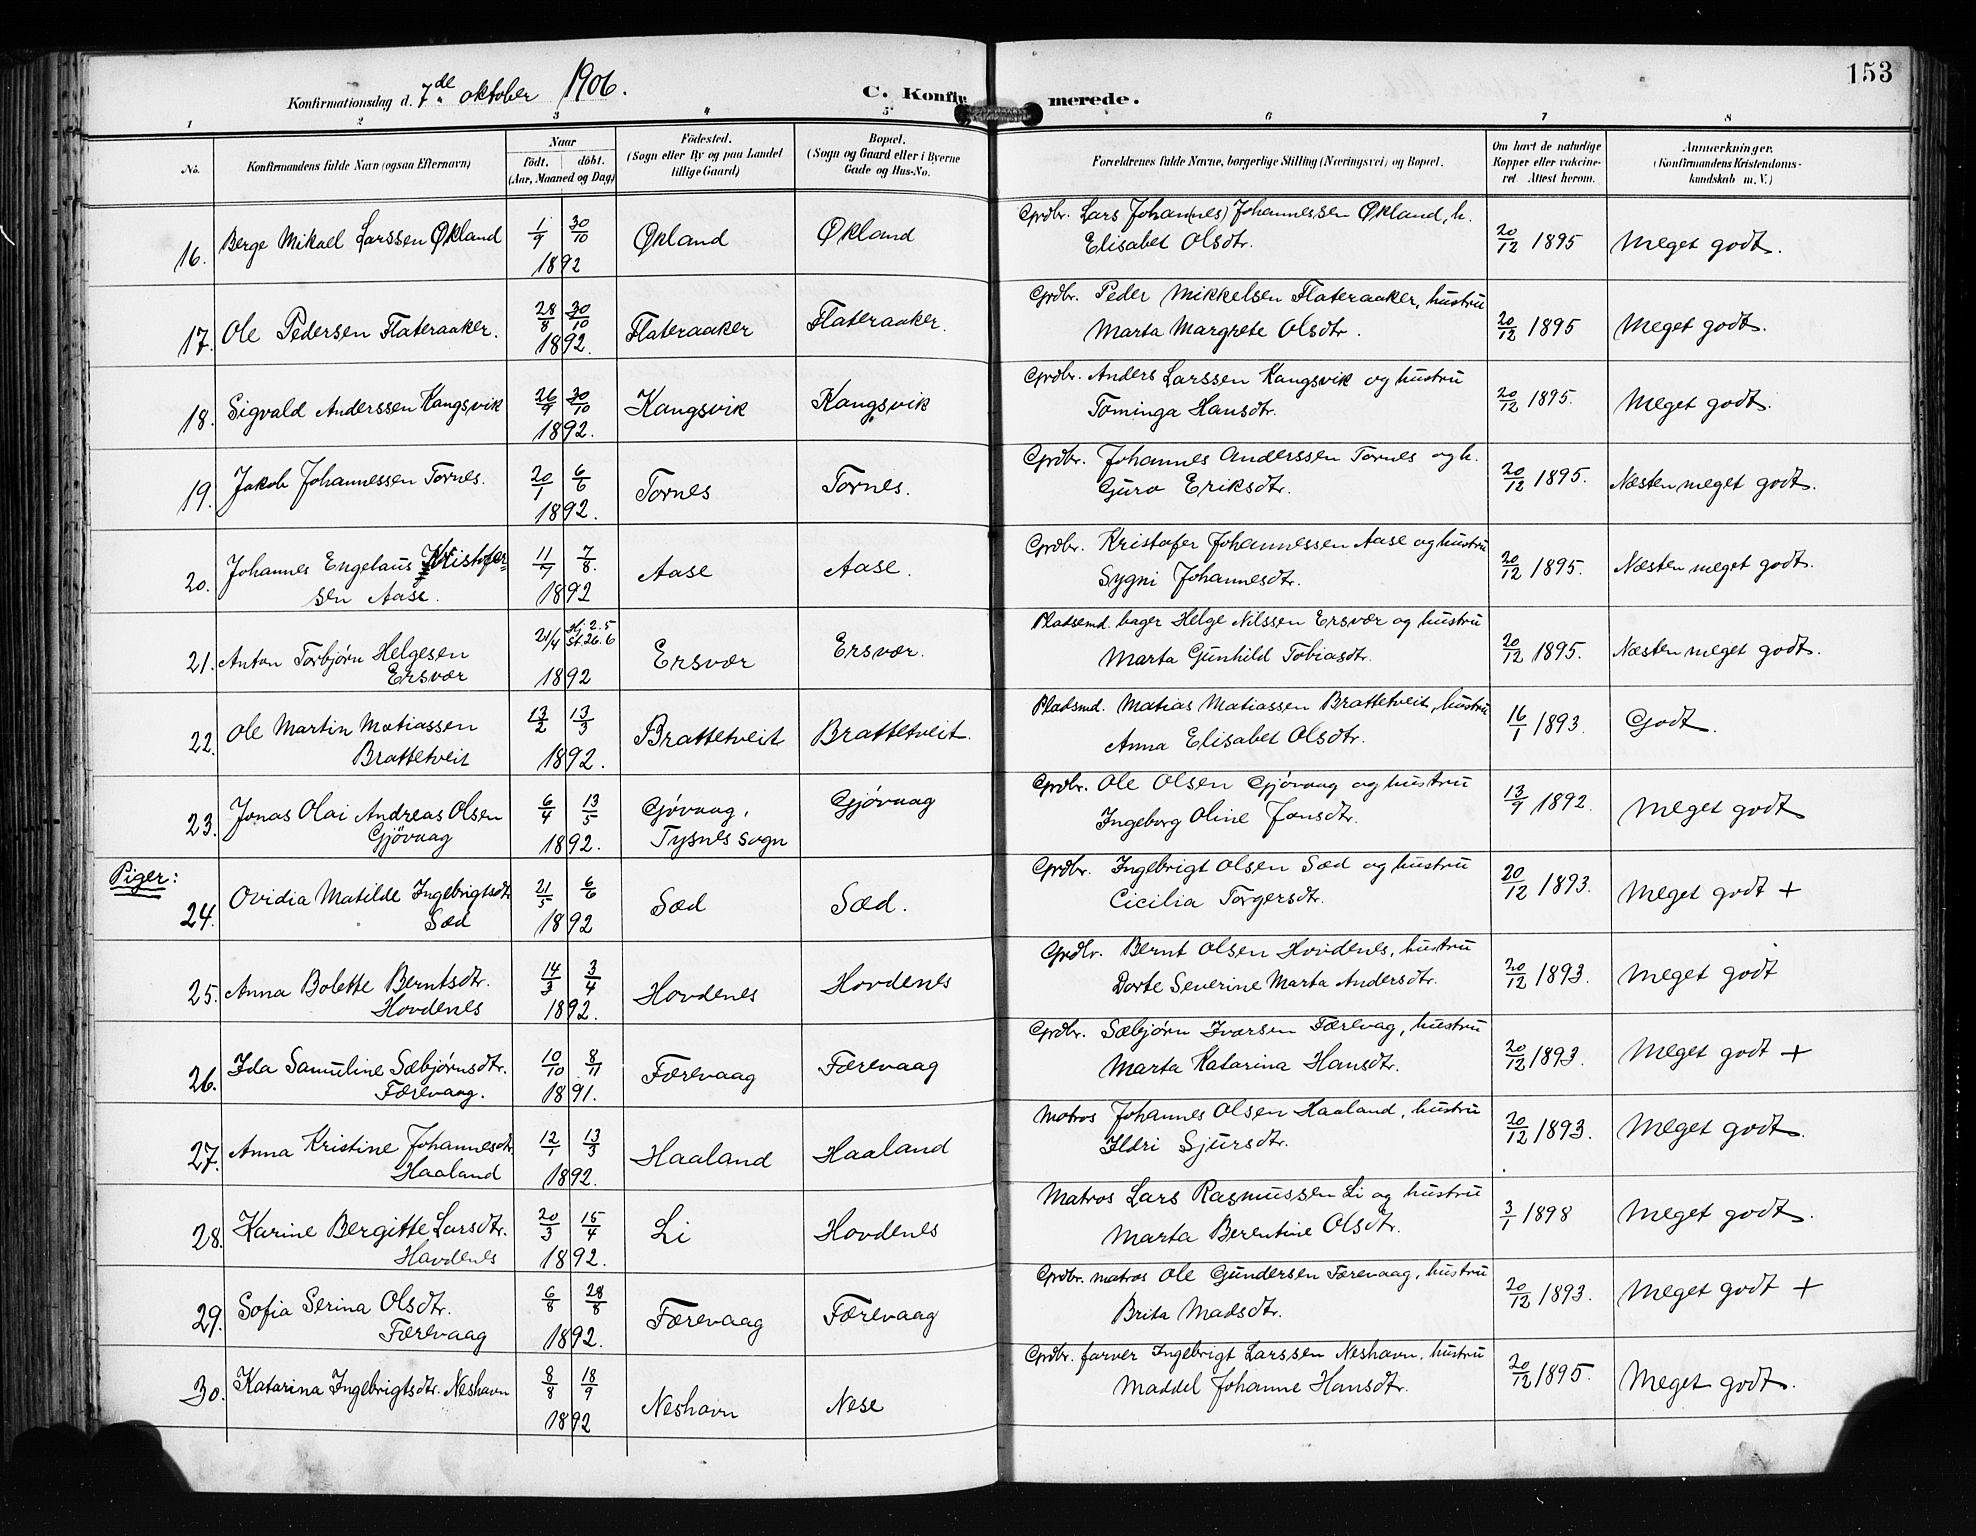 153
Konfirmationsdag d. 7de oktober 1906.
C. Konfirmerede.
1 2 3 4 5 6 7 8
No. Konfirmandens fulde Navn (ogsaa Efternavn) Naar født, døbt. (Aar, Maaned og Dag) Fødested. (Sogn eller By og paa Landet tillige Gaard) Bopæl. (Sogn og Gaard eller i Byerne Gade og Hus-No. Forældrenes fulde Navne, borgerlige Stilling (Næringsvei) og Bopæl. Om havt de naturlige Kopper eller vakcineret. Attest herom. Anmærkninger. (Konfirmandens Kristendomskundskab m. V.)
16. Berge Mikael Larssen Økland 1/9 30/10 1892 Økland Økland Grdbr. Lars Johan(nes) Johannessen Økland, h.
Elisabet Olsdtr. 20/12 1895 Meget godt.
17. Ole Pedersen Flateraaker. 28/8 30/10 1892. Flateraaker Flateraaker. Grdbr. Peder Mikkelsen Flateraaker, hustru
Marta Margrete Olsdtr. 20/12 1895 Meget godt.
18. Sigvald Anderssen Kangsvik 26/9 30/10 1892. Kangsvik Kangsvik Grdbr. Anders Larssen Kangsvik og hustru
Tominga Hansdtr. 20/12 1895. Meget godt.
19. Jakob Johannessen Tornes. 20/1 6/6 1892. Tornes Tornes. Grdbr. Johannes Anderssen Tornes og h.
Guro Eriksdtr. 20/12 1895. Næsten meget godt.
20. Johannes Engelaus Kristofer-
sen Aase. 11/7 7/8. 1892 Aase Aase. Grdbr. Kristofer Johannessen Aase og hustru
Sygni Johannesdtr. 20/12 1895. Næsten meget godt.
21. Anton Torbjørn Helgesen
Ersvær 21/4 Hj. 2.5 St. 26.6 1892 Ersvær Ersvær. Pladsemd. bager Helge Nilssen Ersvær og hustru
Marta Gunhild Tobiasdtr. 20/12 1895. Næsten meget godt.
22. Ole Martin Matiassen
Brattetveit 13/2 13/3 1892. Brattetveit Brattetveit. Pladsmd. Matias Matiassen Brattetveit, hustru
Anna Elisabet Olsdtr. 16/1 1893. Godt.
23. Jonas Olai Andreas Olsen
Gjövaag 6/4 13/5 1892. Gjövaag,
Tysnes sogn Gjövaag Grdbr. Ole Olsen Gjövaag og hustru
Ingeborg Oline Jonsdtr. 13/9 1892. Meget godt
Piger:
24. Ovidia Matilde Ingebrigtsdtr
Sæd 21/5 6/6 1892 Sæd Sæd. Grdbr. Ingebrigt Olsen Sæd og hustru
Cicilia Torgersdtr. 20/12 1893. Meget godt +
25. Anna Bolette Berntsdtr.
Hovdenes 14/3 3/4 1892. Hovdenes Hovdenes Grdbr. Bernt Olsen Hovdenes, hustru
Dorte Severine Marta Andersdtr. 20/12 1893. Meget godt
26. Ida Samuline Sæbjørnsdtr.
Færevaag. 10/10 8/11 1891. Færevaag Færevaag Grdbr. Sæbjørn Ivarsen Færevag, hustru
Marta Katarina Hansdtr. 20/12 1893. Meget godt +
27. Anna Kristine Johannesdtr.
Haaland 12/1 13/3 1892. Haaland Haaland Matros Johannes Olsen Haaland, hustru
Ildri Sjursdtr. 20/12 1893. Meget godt.
28. Karine Bergitte Larsdtr.
Hovdenes 20/3 15/4 1892. Li Hovdenes Matros Lars Rasmussen Li og hustru
Marta Berentine Olsdtr. 3/1 1898 Meget godt.
29. Sofia Serina Olsdtr.
Færevaag 6/8 28/8 1892. Færevaag Færevaag Grdbr. matros Ole Gundersen Færevaag, hustru
Brita Madsdtr. 20/12 1893. Meget godt +
30. Katarina Ingebrigtsdtr. Neshavn 8/8 18/9 1892 Neshavn Nese Grdbr. farver Ingebrigt Larssen Neshavn, hustru
Maddel Johanne Hansdtr. 20/12 1895. Meget godt.